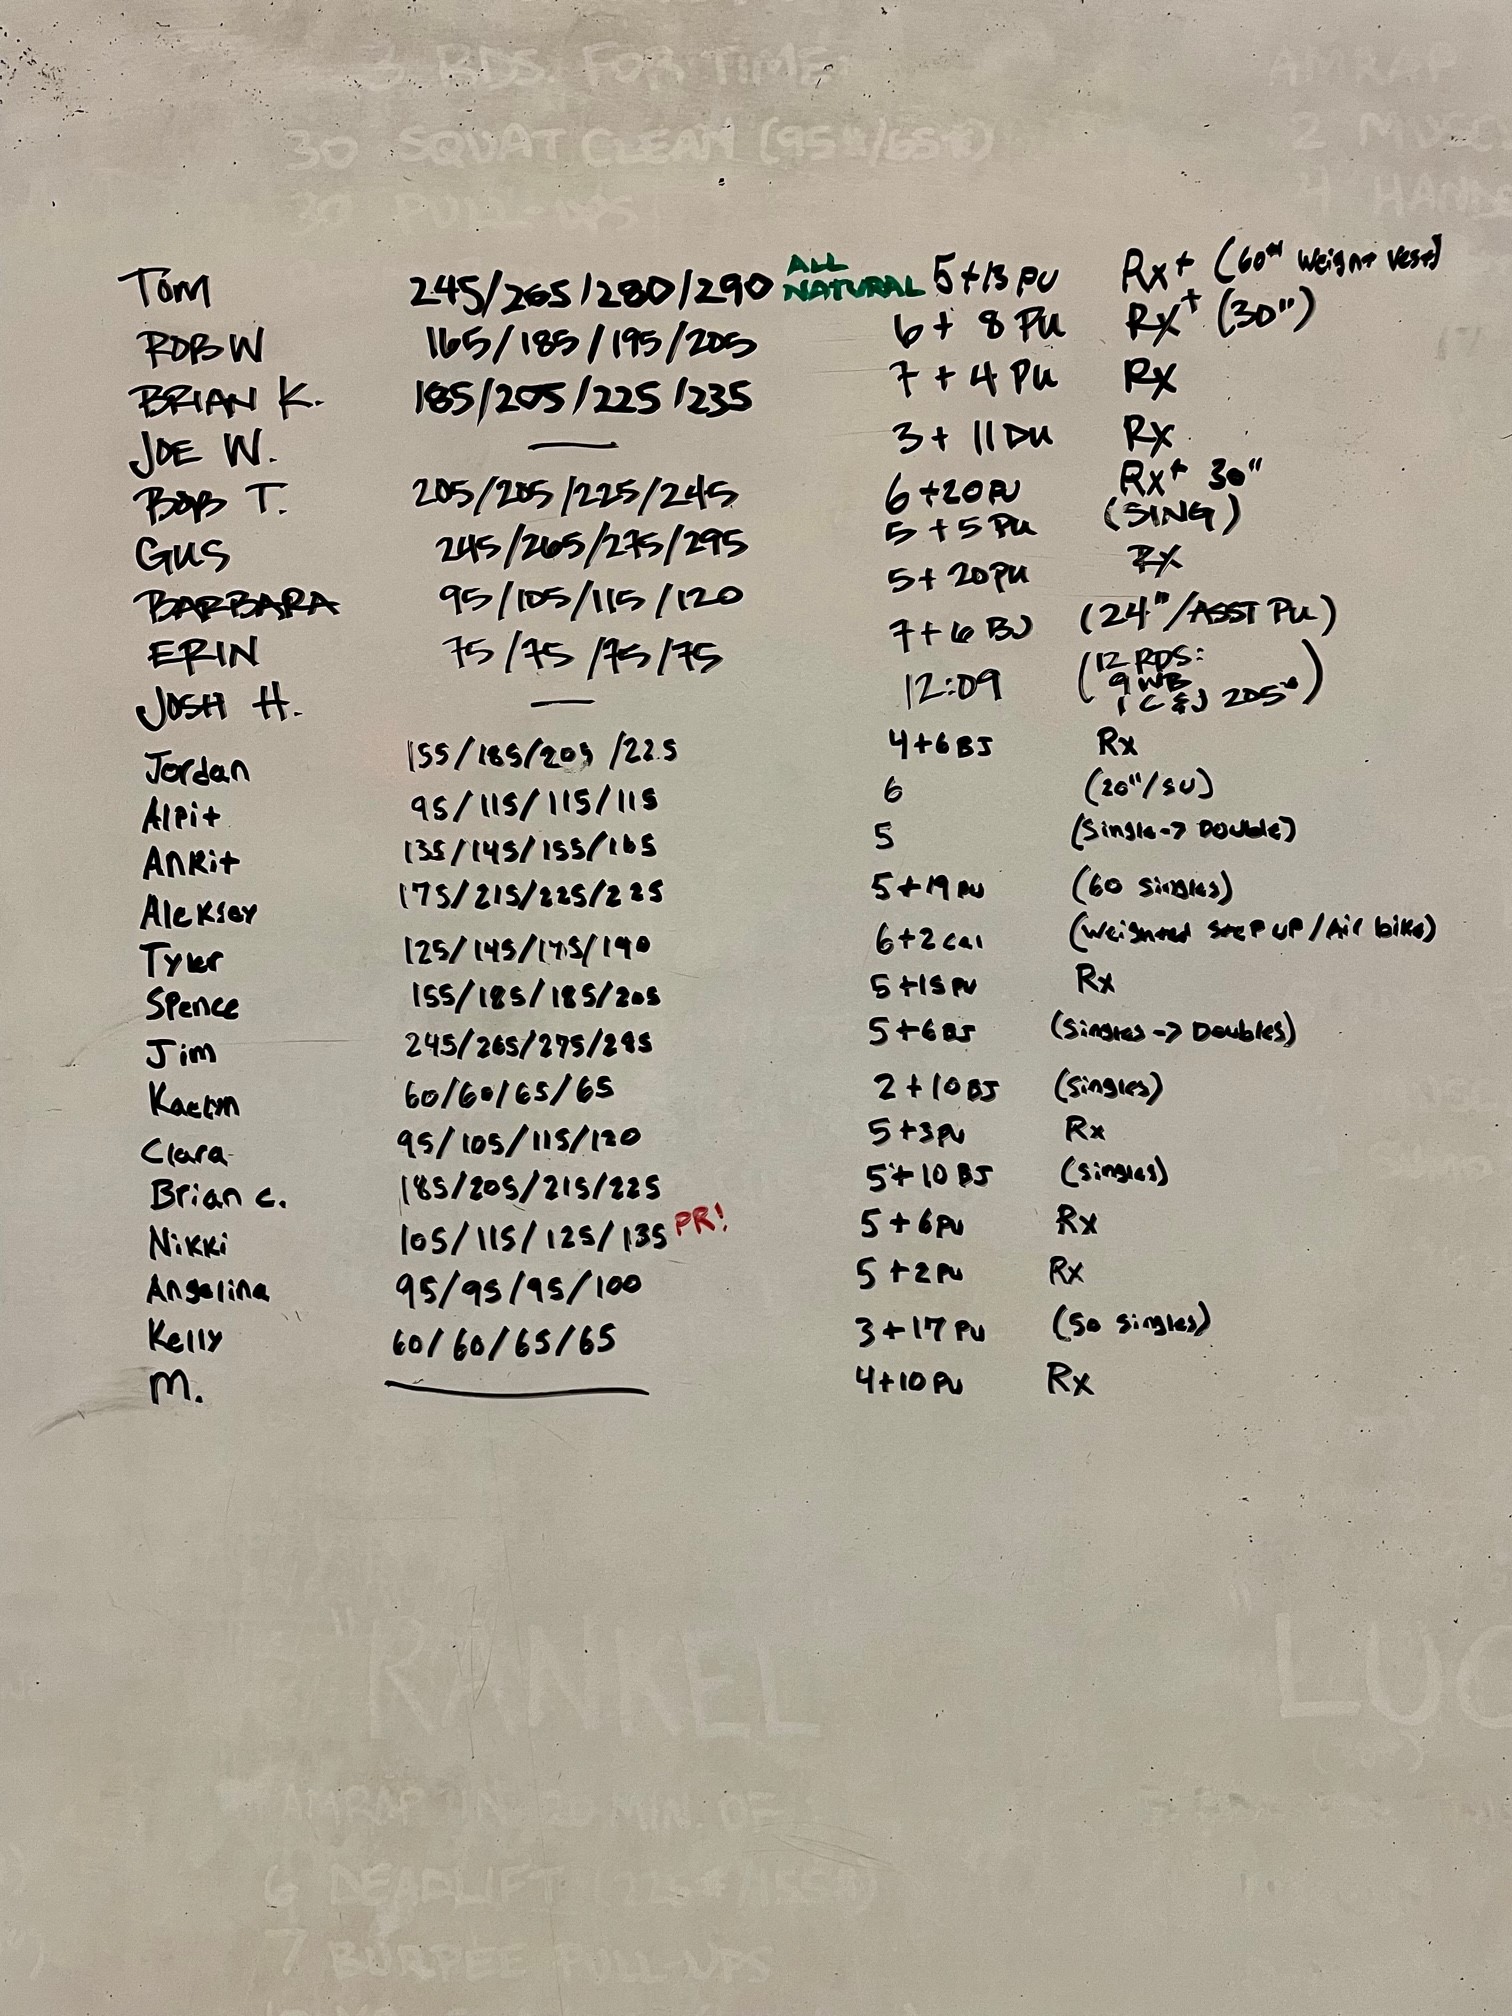 3 RDS. FOR TIME
AMRAP
30 SQUAT CLEAN (95#/65#)
2
30 PULL-UPS
4
Tom 245/265/280/290 ALL NATURAL 5+13 PU Rx+ (60# Weight Vest)
ROB W 165/185/195/205 6+ 8 PU Rx+ (30")
BRIAN K. 185/205/225/235 7+4 PU Rx
JOE W. — 3+ 11 DU Rx
BOB T. 205/205/225/245 6+20 PU Rx+ 30"
GUS 245/265/275/295 5+5 PU (SING)
BARBARA 95/105/115/120 5+ 20PU Rx
ERIN 75/75/75/75 7+6 BJ (24"/ASST PU)
JOSH H. — 12:09 (12 RDS: 9 WB 1 C&J 205#)
Jordan 155/185/205/225 4+6 BJ Rx
Alpit 95/115/115/115 6 (20"/SU)
Ankit 135/145/155/165 5 (Single -> Double)
Aleksey 175/215/225/225 5+19 PU (60 Singles)
Tyler 125/145/175/190 6+2 Cal (Weighted Step UP/Air bike)
Spence 155/185/185/205 5+15 PU Rx
Jim 245/265/275/295 5+6 BJ (Singles -> Doubles)
Kaelyn 60/60/65/65 2+10 BJ (Singles)
Clara 95/105/115/120 5+3 PU Rx
Brian C. 185/205/215/225 5+10 BJ (Singles)
Nikki 105/115/125/135 PR! 5+6 PU Rx
Angelina 95/95/95/100 5+2 PU Rx
Kelly 60/60/65/65 3+17 PU (50 Singles)
M. — 4+10 PU Rx
"RANKEL"
AMRAP IN 20 MIN. OF
6 DEADLIFT (225#/155#)
7 BURPEE PULL-UPS